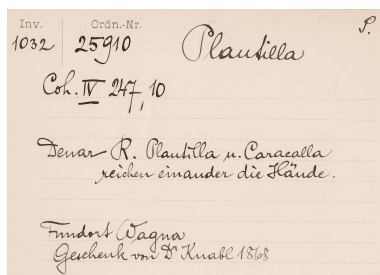 Inv. Ordn.-Nr. S.
1032 25910 Plautilla
Coh. IV 247,10
Denar R. Plautilla u. Caracalla
reichen einander die Hände.
Fundort Wagna
Geschenk von Dr Knabl 1868